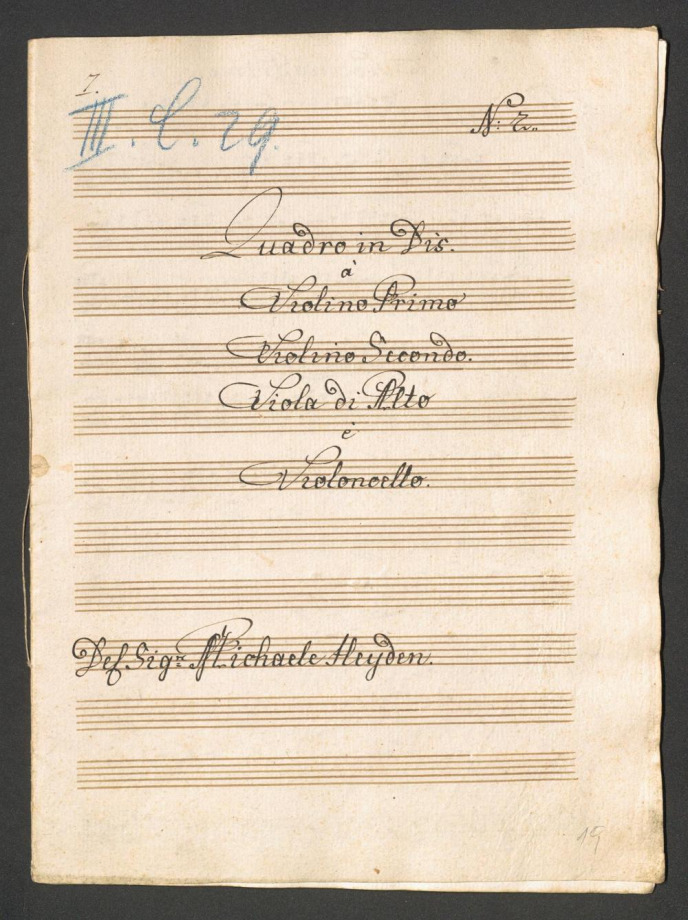 7.
III. C. 29.
N: 2.
Quadro in Dis.
à
Violino Primo
Violino Secondo.
Viola di Alto
è
Violoncello.
Del Sigr: Michaele Heyden.
19